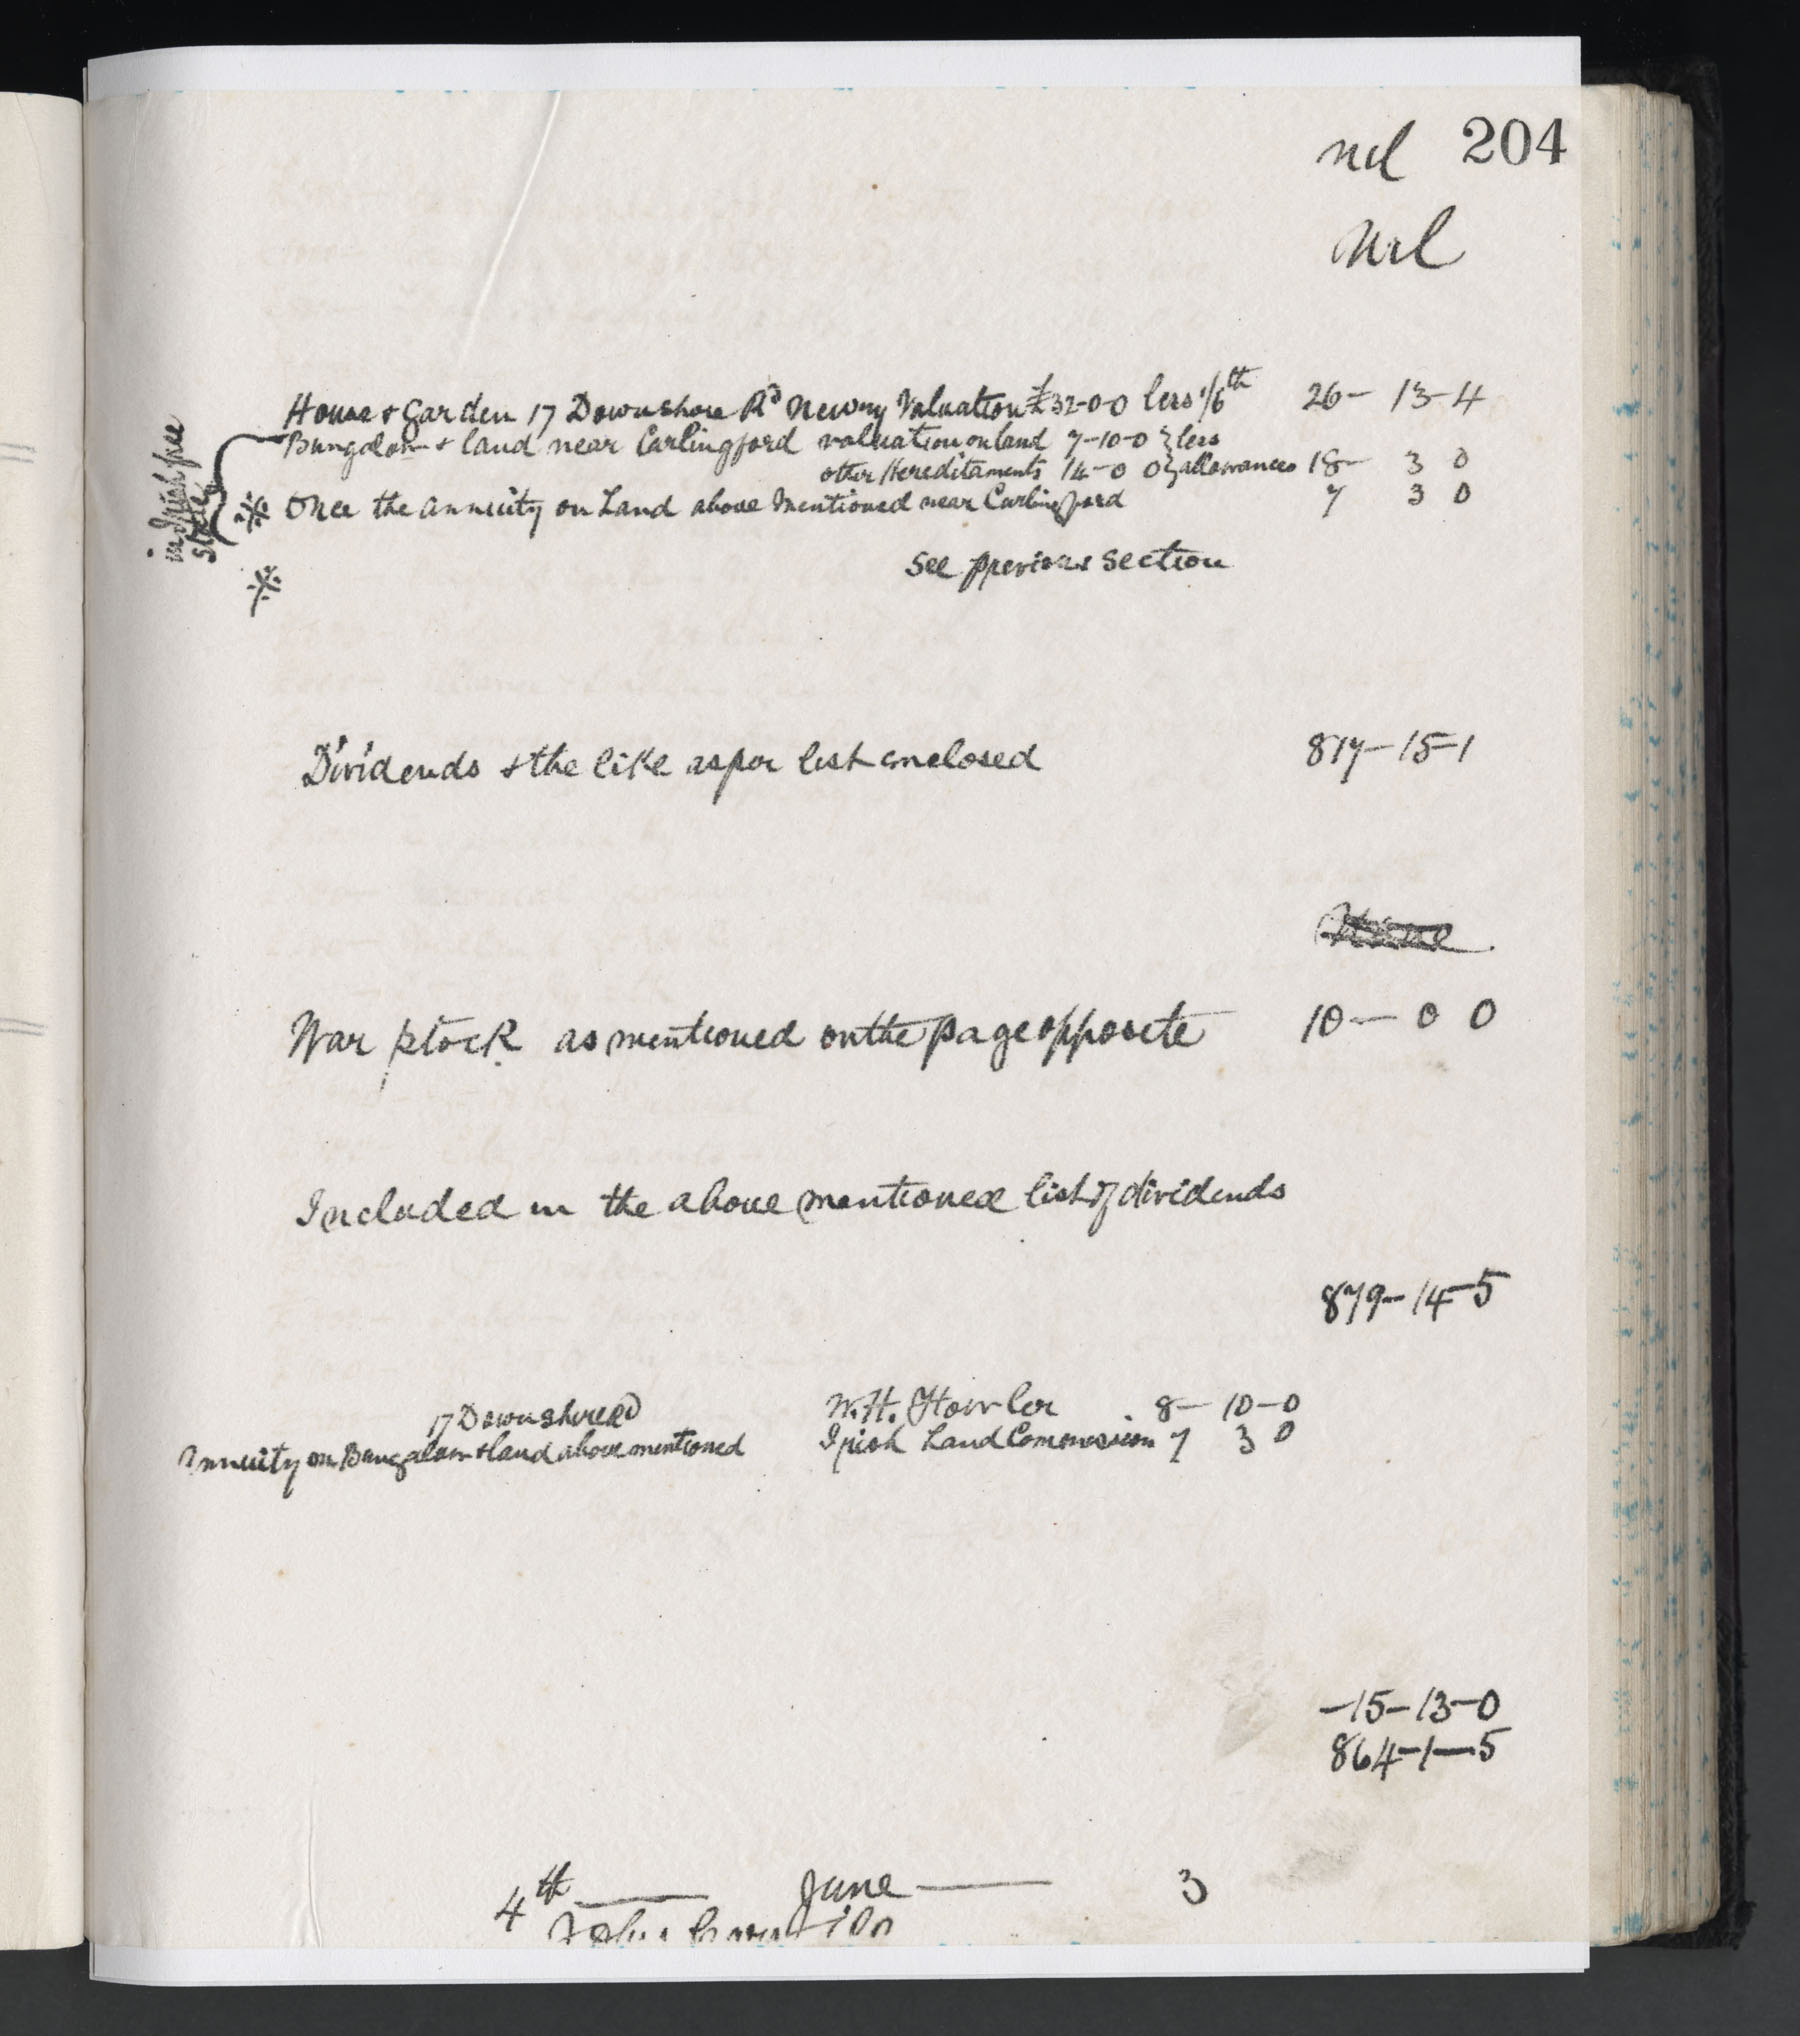 nil 204
Nil
House & Garden 17 Downshire Rd Newry Valuation £32-0-0 less 1/6th 26-13-4
Bungalow & land near Carlingford valuation on land 7-10-0 } less
other Hereditaments 14-0 0 } allowances 18- 3 0
in Irish free
state
※ Once the annuity on Land above mentioned near Carlingford 7 3 0
See previous section
※
Dividends & the like as per list enclosed 817-15-1
War stock as mentioned on the page opposite 10-0 0
Included in the above mentioned list of dividends
879-14-5
17 Downshire Rd W. H. Fowler 8-10-0
Annuity on Bungalow & land above mentioned Irish Land Commission 7 3 0
-15-13-0
864-1-5
4th June 3